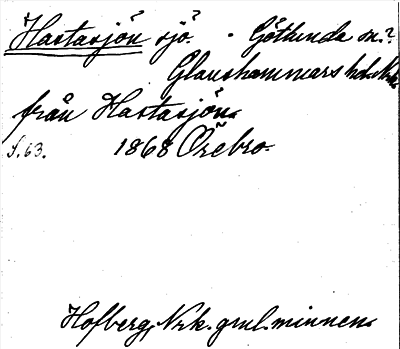 Hastasjön sjö? . Götlunda sn.?
Glanshammars hd. Nrk.
från Hastasjön.
S. 63. 1868 Örebro.
Hofberg, Nrk. gml. minnen.